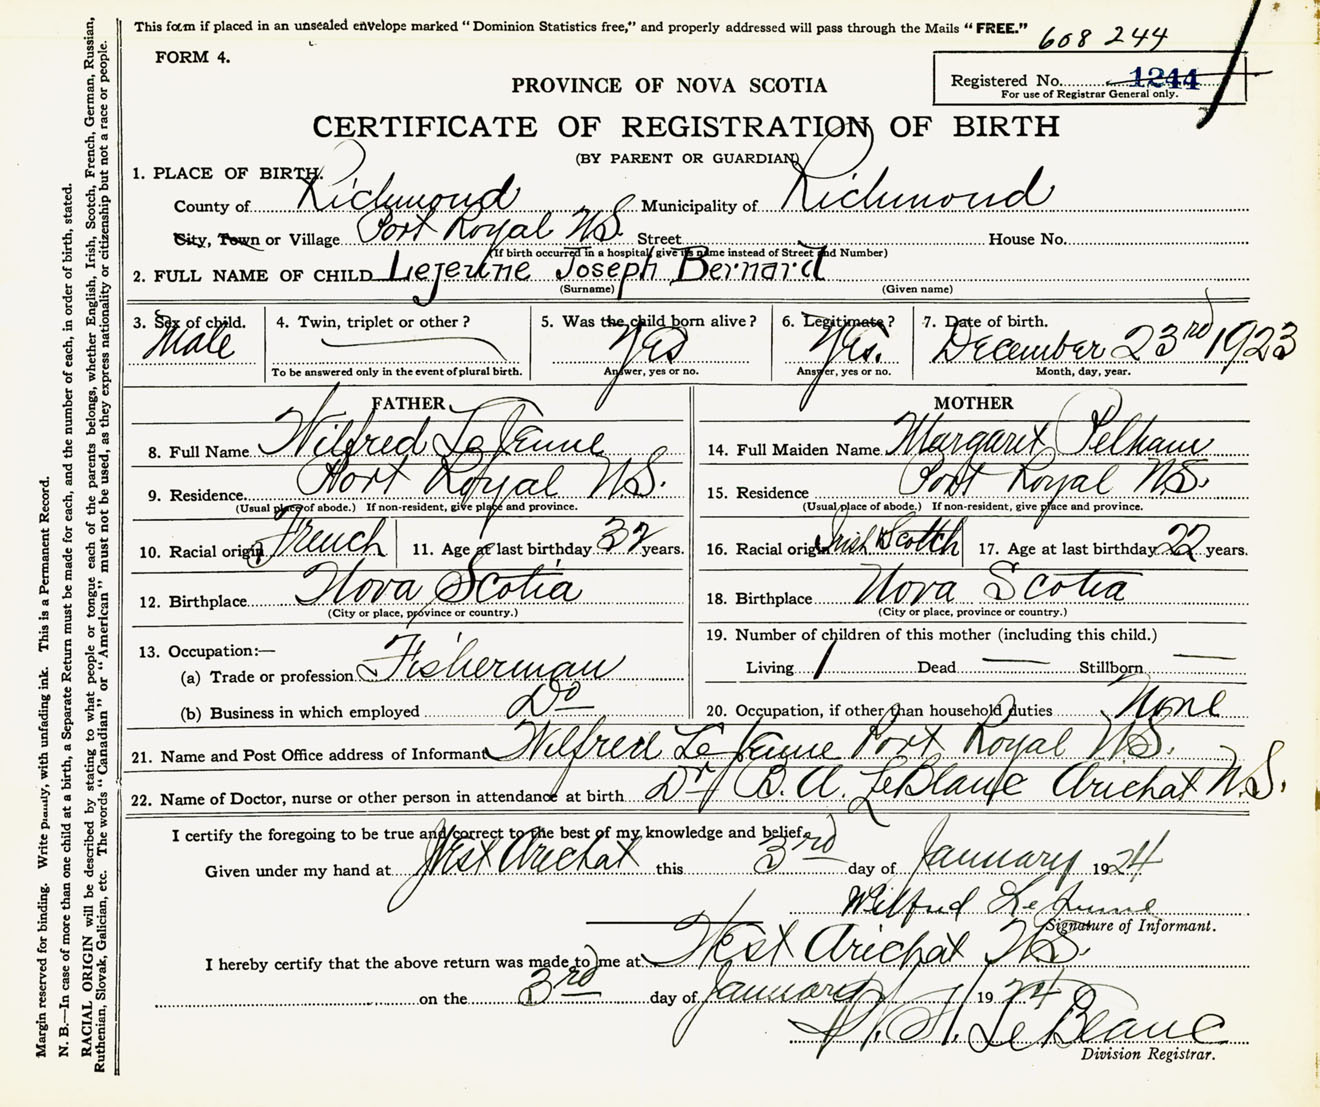 This form if placed in an unsealed envelope marked "Dominion Statistics free," and properly addressed will pass through the Mails "FREE."
608 244
FORM 4.
Registered No. 1244
For use of Registrar General only.
PROVINCE OF NOVA SCOTIA
CERTIFICATE OF REGISTRATION OF BIRTH
(BY PARENT OR GUARDIAN)
1. PLACE OF BIRTH.
County of Richmond Municipality of Richmond
City, Town or Village Port Royal N.S. Street House No.
(If birth occurred in a hospital give its name instead of Street and Number)
2. FULL NAME OF CHILD Lejeune Joseph Bernard
(Surname) (Given name)
3. Sex of child. 4. Twin, triplet or other? 5. Was the child born alive? 6. Legitimate? 7. Date of birth.
Male Yes Yes. December 23rd 1923
To be answered only in the event of plural birth. Answer, yes or no. Answer, yes or no. Month, day, year.
FATHER MOTHER
8. Full Name Wilfred LeJeune 14. Full Maiden Name Margaret Pelham
9. Residence Port Royal N.S. 15. Residence Port Royal N.S.
(Usual place of abode.) If non-resident, give place and province. (Usual place of abode.) If non-resident, give place and province.
10. Racial origin French 11. Age at last birthday 32 years. 16. Racial origin Irish Scotch 17. Age at last birthday 22 years.
12. Birthplace Nova Scotia 18. Birthplace Nova Scotia
(City or place, province or country.) (City or place, province or country.)
13. Occupation:— 19. Number of children of this mother (including this child.)
(a) Trade or profession Fisherman Living 1 Dead — Stillborn —
(b) Business in which employed Do 20. Occupation, if other than household duties None
21. Name and Post Office address of Informant Wilfred LeJeune Port Royal N.S.
22. Name of Doctor, nurse or other person in attendance at birth Dr B. A. LeBlanc Arichat N.S.
I certify the foregoing to be true and correct to the best of my knowledge and belief.
Given under my hand at West Arichat this 3rd day of January 1924
Wilfred LeJeune
Signature of Informant.
I hereby certify that the above return was made to me at West Arichat N.S.
on the 3rd day of January 1924
LeBlanc
Division Registrar.
Margin reserved for binding. Write plainly, with unfading ink. This is a Permanent Record.
N. B.—In case of more than one child at a birth, a Separate Return must be made for each, and the number of each, in order of birth, stated.
RACIAL ORIGIN will be described by stating to what people or tongue each of the parents belongs, whether English, Irish, Scotch, French, German, Russian,
Ruthenian, Slovak, Galician, etc. The words "Canadian" or "American" must not be used, as they express nationality or citizenship but not a race or people.